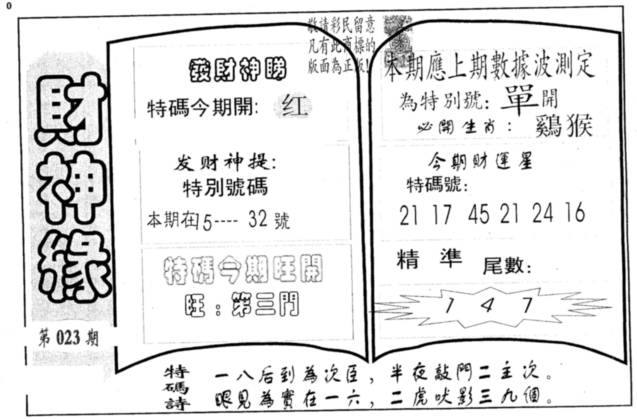 0
敬請彩民留意
凡有此商標的
版面為正版!
財神緣
第023期
發財神睇
特碼今期開: 红
发财神提:
特別號碼
本期在5---- 32號
特碼今期旺開
旺:第三門
本期應上期數據波測定
為特別號: 單開
必開生肖: 鷄猴
今期財運星
特碼號:
21 17 45 21 24 16
精準 尾數:
1 4 7
特碼詩
一八后到為次臣,半夜敲門二主次。
眼見為實在一六,二虎吠影三九個。